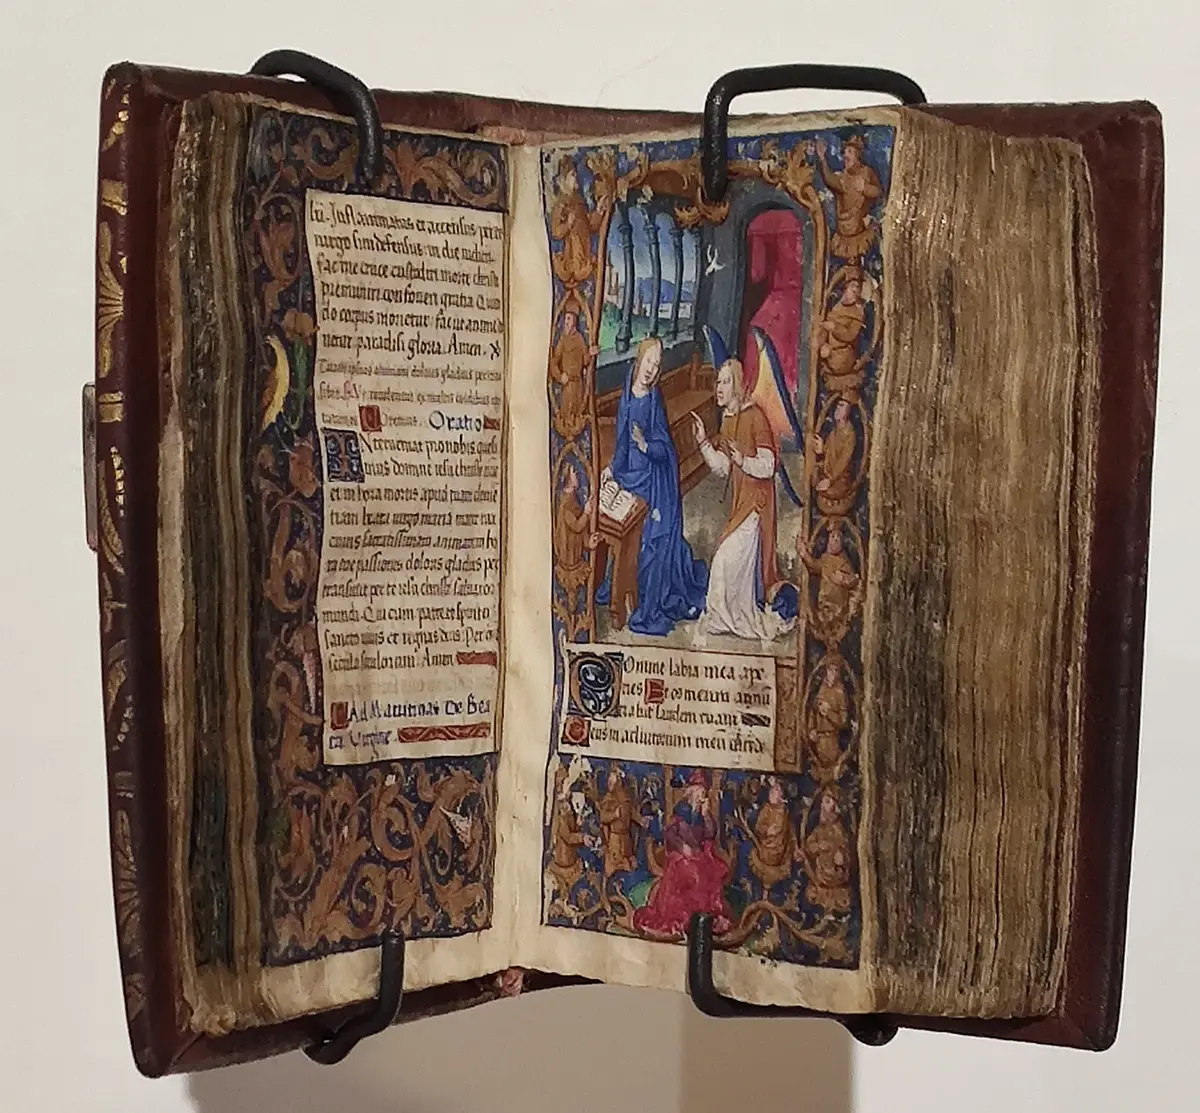 lū. Inflammatus et accensus per te
virgo sim defensus in die iudicii.
Fac me cruce custodiri morte christi
premuniri confoveri gratia. Quan
do corpus morietur fac ut anime do
netur paradisi gloria. Amen. V
Tuam ipsius animam doloris gladius pertran
sibit. R Ut revelentur ex multis cordibus co
Oremus. Oratio
INterveniat pro nobis quesu
mus domine iesu christe nunc
et in hora mortis apud tuam clemē
tiam beata virgo maria mater tua
cuius sacratissimam animam in ho
ra tue passionis doloris gladius per
transivit per te iesu christe salvator
mundi. Qui cum patre et spiritu
sancto vivis et regnas deus. Per o
secula seculorum. Amen
Ad Matutinas De Bea
ta Virgine
DOmine labia mea ape
ries Et os meum annū
ciabit laudem tuam
Deus in adiutorium meū